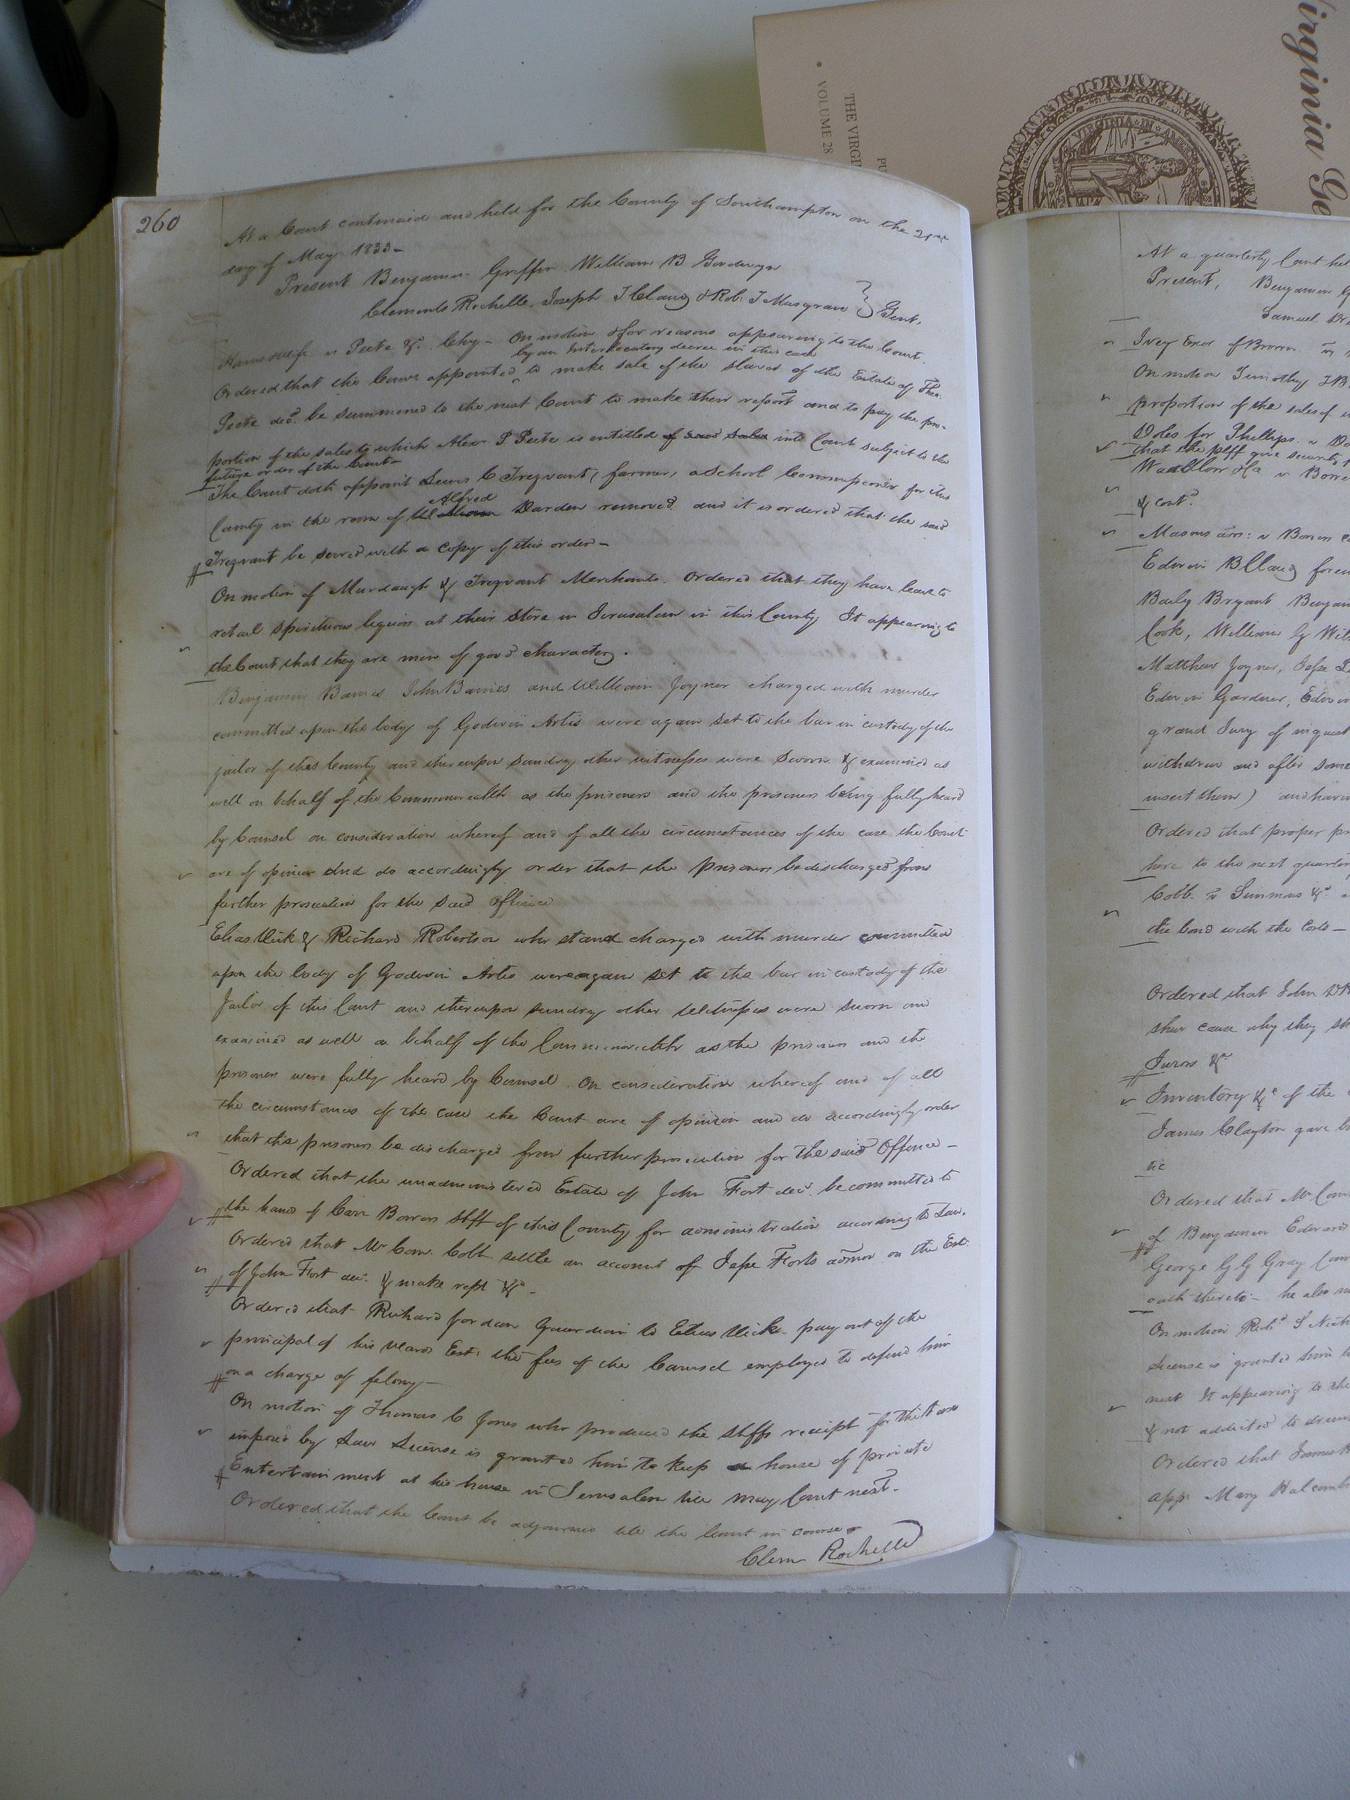 260
At a Court continued and held for the County of Southampton on the 21st
day of May 1833-
Present Benjamin Griffin William B Goodwyn
Clements Rochelle, Joseph T Claud & Rob. T Musgrave } Gent.
wife v Peete &c. Chy - On motion & for reasons appearing to the Court.
by an Interlocutory decree in this case
Ordered that the Comrs appointed ^ to make sale of the slaves of the Estate of Thos.
Peete decd. be summoned to the next Court to make their report and to pay the pro-
portion of the sales to which Alexr. P Peete is entitled of said sales into Court subject to the
future order of the Court-
The Court doth appoint Lewis C Trezvant, farmer, a School Commissioner for this
Alfred
County in the room of Darden removed and it is ordered that the said
Trezvant be served with a copy of this order-
On motion of Murdaugh & Trezvant Merchants. Ordered that they have leave to
retail spirituous liquors at their Store in Jerusalem in this County It appearing to
the Court that they are men of good character.
Benjamin Barnes John Barnes and William Joyner charged with murder
committed upon the body of Godwin Artis were again set to the bar in custody of the
jailor of this County and thereupon sundry other witnesses were sworn & examined as
well on behalf of the Commonwealth as the prisoners and the prisoners being fully heard
by Counsel on consideration whereof and of all the circumstances of the case the Court
are of opinion and do accordingly order that the prisoners be discharged from
further prosecution for the said offence
Elias Vick & Richard Robertson who stand charged with murder committed
upon the body of Godwin Artis were again set to the bar in custody of the
Jailor of this Court and thereupon sundry other witnesses were sworn and
examined as well on behalf of the Commonwealth as the prisoners and the
prisoners were fully heard by Counsel. On consideration whereof and of all
the circumstances of the case the Court are of opinion and do accordingly order
that the prisoners be discharged from further prosecution for the said Offence-
Ordered that the unadministered Estate of John Fort decd. be committed to
the hands of Carr Bowers Shff of this County for administration according to Law.
Ordered that Mr Comr. Cobb settle an account of Jesse Forts admon on the Est:
of John Fort decd. & make rept &c-
Ordered that Richard Jordan Guardian to Elias Vick pay out of the
principal of his wards Est: the fees of the Counsel employed to defend him
on a charge of felony-
On motion of Thomas C Jones who produced the Shffs receipt for the tax
imposed by Law License is granted him to keep a house of private
Entertainment at his house in Jerusalem till May Court next.-
Ordered that the Court be adjourned till the Court in course
Clem Rochelle
At a quarterly Court hel
Present, Benjamin G
Samuel
Ivey Exor of Brown v
On motion Timothy
proportion of the sales of
for Phillips v
that the plff give security
v
& cost.
Masons v Bowers
Edwin B Claud forem
Baily Bryant Benjam
Cook, William G
Matthew Joyner, Jesse
Edwin Gardner, Edwin
grand Jury of inquest
withdrew and after some
insert them) and havin
Ordered that proper pr
here to the next quarter
Cobb v Simmons &c
the bond with the Costs-
Ordered that John
shew cause why they sh
Jurors &c
Inventory &c of the
James Clayton gave b
tic
Ordered that Mr Com
of Benjamin Edward
George G G Gray Com
oath thereto- he also
On motion Richd. S
License is granted him
next It appearing to the
& not addicted to drun
Ordered that James
app. Mary Halcomb
Virginia Ge
THE VIRGIN
VOLUME 28
PU
VIRGINIA